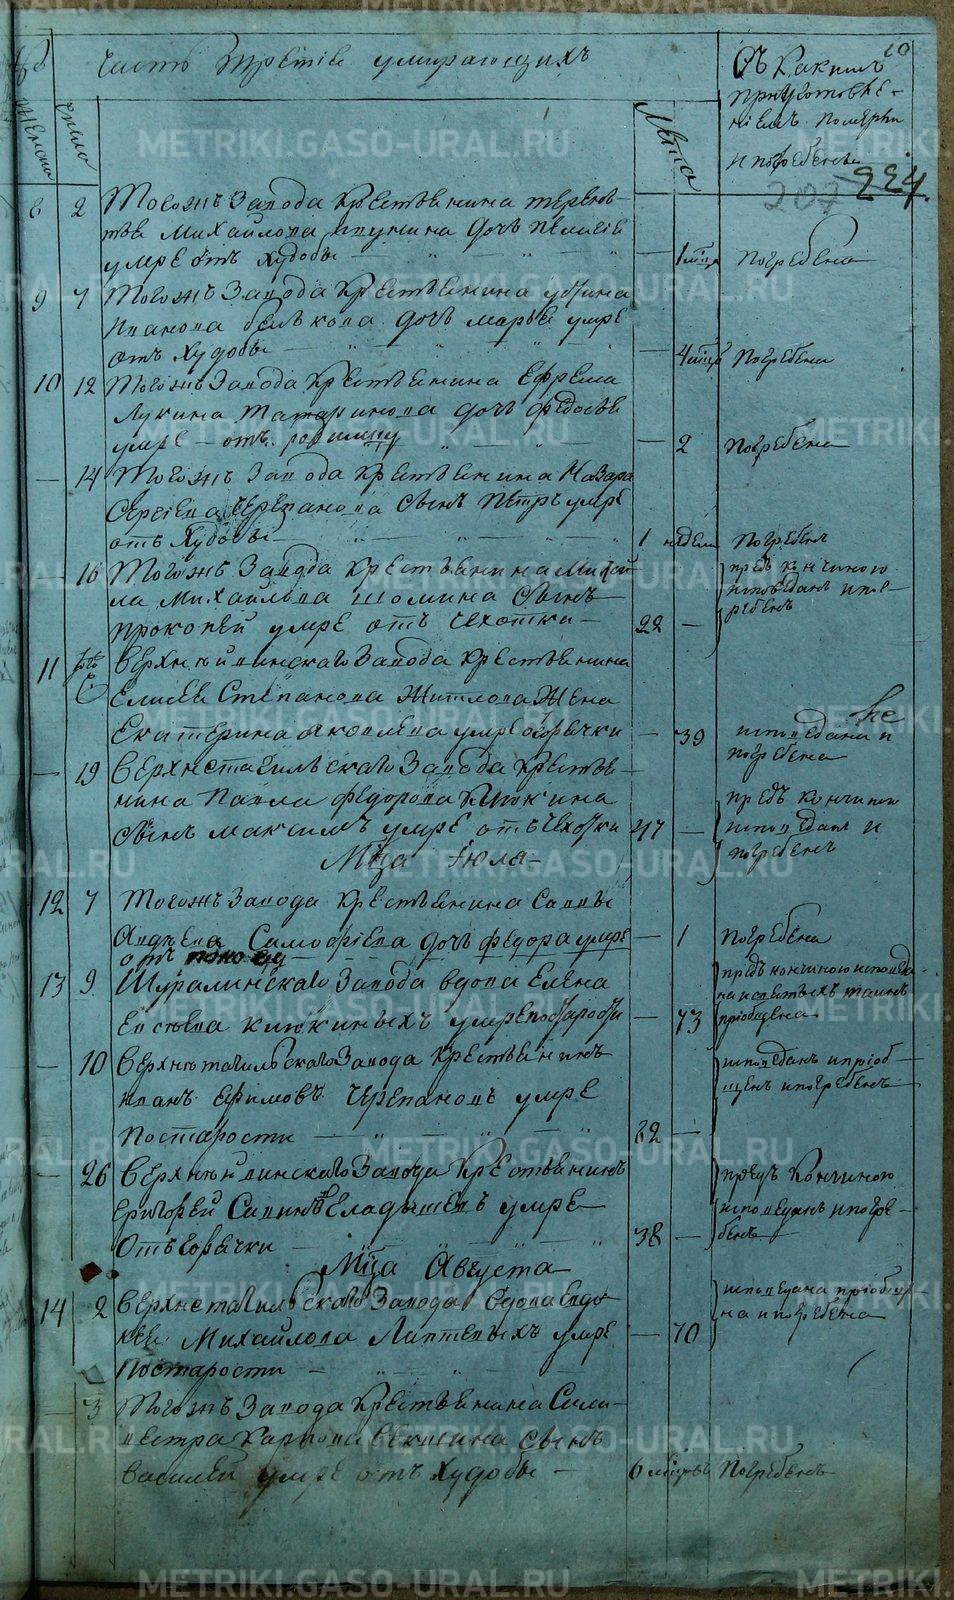 Часть Третiе умирающихъ
10
Съ Какимъ
приуготовле-
нiемъ померли
и погребены
207
224.
женска
Число
Лѣта
8 2 Тогожъ Завода Крестьянина терень-
тiя Михайлова дочь пелагiе
умре отъ Худобы — 1 мцъ Погребена
9 7 Тогожъ Завода Крестьянина
Иванова белькова дочь марье умре
отъ Худобы — 4 мцъ Погребена
10 12 Тогожъ Завода Крестьянина Ефрема
Лукина Татаринова дочь федосье
умре — отъ родимцу — 2 Погребена
— 14 Тогожъ Завода Крестьянина Назара
Сергiева Черепанова Сынъ Петръ умре
отъ Худобы 1 недели Погребенъ
— 16 Тогожъ Завода Крестьянина Михай-
ла Михайлова шомина Сынъ
прокопей умре отъ Чехотки — 22 —
предъ кончиною
исповѣданъ и пог-
ребенъ
11 Верхнейвинскаго Завода Крестьянина
Елисея Степанова Житлова Жена
Екатерина яковлева умре отгорячки — 39
не
исповѣдана и
погребена
— 19 Верхнетагильскаго Завода Крестья-
нина Павла Федорова Клюкина
Сынъ максимъ умре отъ Чехотки 47 —
предъ кончиною
исповѣданъ и
погребенъ
Мца Iюля —
12 7 Тогожъ Завода Крестьянина Саввы
Авдѣева Самофiева дочь федора умре — 1 Погребена
отъ
13 9 Шуралинскаго Завода вдова Елена
Евсѣева клюкиныхъ умре постарости — 73
предъ кончиною исповѣда-
на исвятыхъ таинъ
прiобщена
— 10 Верхнетагильскаго Завода Крестьянинъ
иванъ Ефимовъ Черепановъ умре
постарости 82 —
исповѣданъ иприоб-
щенъ ипогребенъ
— 26 Верхнейвинскаго Завода Крестьянинъ
григорей Савинъ Еладышевъ умре
Отъ Горячки 38 —
предъ Кончиною
исповѣданъ ипогре-
бенъ
Мца Августа
14 2 Верхнетагильскаго Завода вдова Евдо-
кея Михайлова Лаптевыхъ умре — 70
постарости —
исповѣдана приобще-
на ипогребена
— 3 Тогожъ Завода Крестьянина Сили-
вестра Карпова векшина Сынъ
василей умре отъ Худобы — 6 мцовъ Погребенъ
METRIKI.GASO-URAL.RU